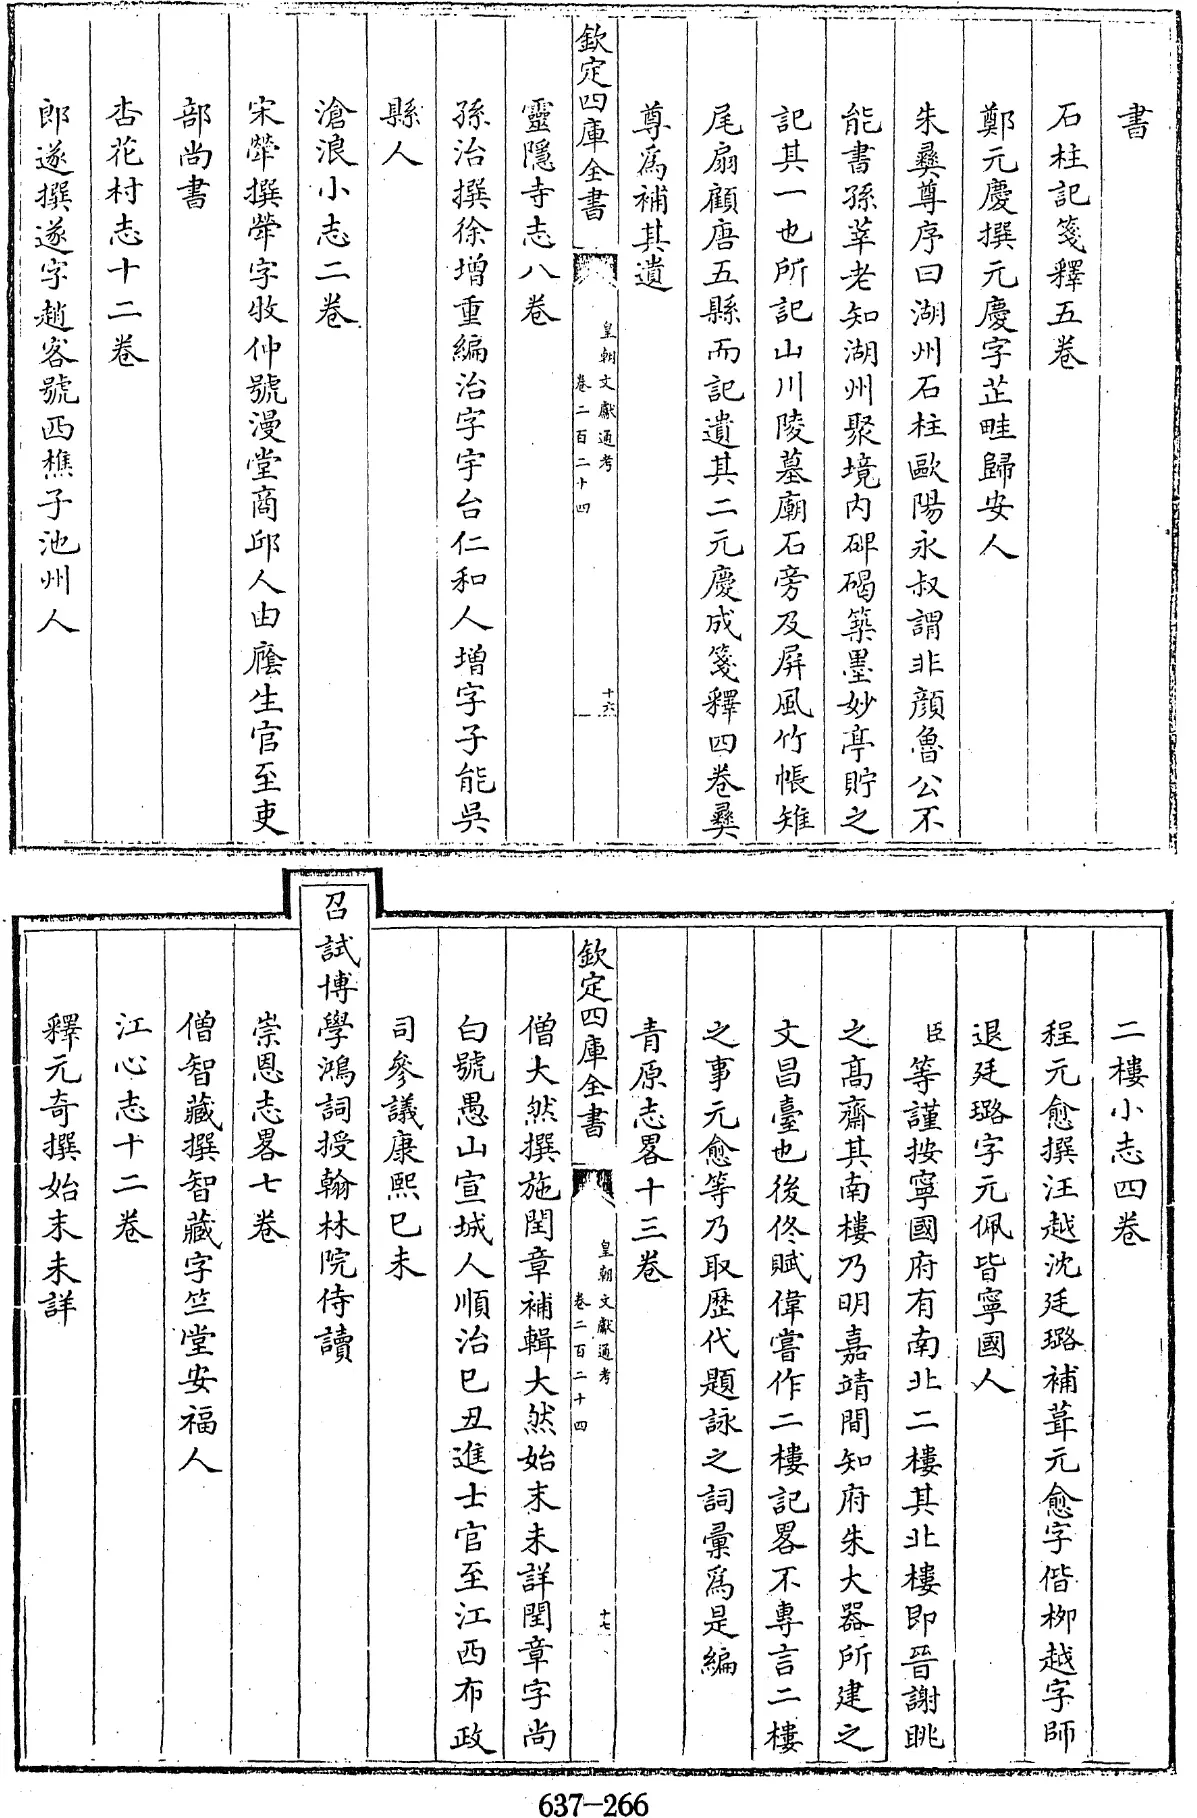 書
石柱記箋釋五卷
鄭元慶撰元慶字芷畦歸安人
朱彝尊序曰湖州石柱歐陽永叔謂非顔魯公不
能書孫莘老知湖州聚境内碑碣築墨妙亭貯之
記其一也所記山川陵墓廟石旁及屏風竹帳雉
尾扇顧唐五縣而記遺其二元慶成箋釋四卷彝
尊爲補其遺
欽定四庫全書
皇朝文獻通考
卷二百二十四
十六
靈隱寺志八卷
孫治撰徐增重編治字宇台仁和人增字子能吳
縣人
滄浪小志二卷
宋犖撰犖字牧仲號漫堂商邱人由廕生官至吏
部尚書
杏花村志十二卷
郎遂撰遂字趙客號西樵子池州人
二樓小志四卷
程元愈撰汪越沈廷璐補葺元愈字偕柳越字師
退廷璐字元佩皆寧國人
臣等謹按寧國府有南北二樓其北樓即晉謝眺
之髙齋其南樓乃明嘉靖間知府朱大器所建之
文昌臺也後佟賦偉嘗作二樓記畧不專言二樓
之事元愈等乃取歷代題詠之詞彚爲是編
青原志畧十三卷
欽定四庫全書
皇朝文獻通考
卷二百二十四
十七
僧大然撰施閏章補輯大然始末未詳閏章字尚
白號愚山宣城人順治己丑進士官至江西布政
司參議康熙己未
召試博學鴻詞授翰林院侍讀
崇恩志畧七卷
僧智藏撰智藏字竺堂安福人
江心志十二卷
釋元奇撰始末未詳
637-266